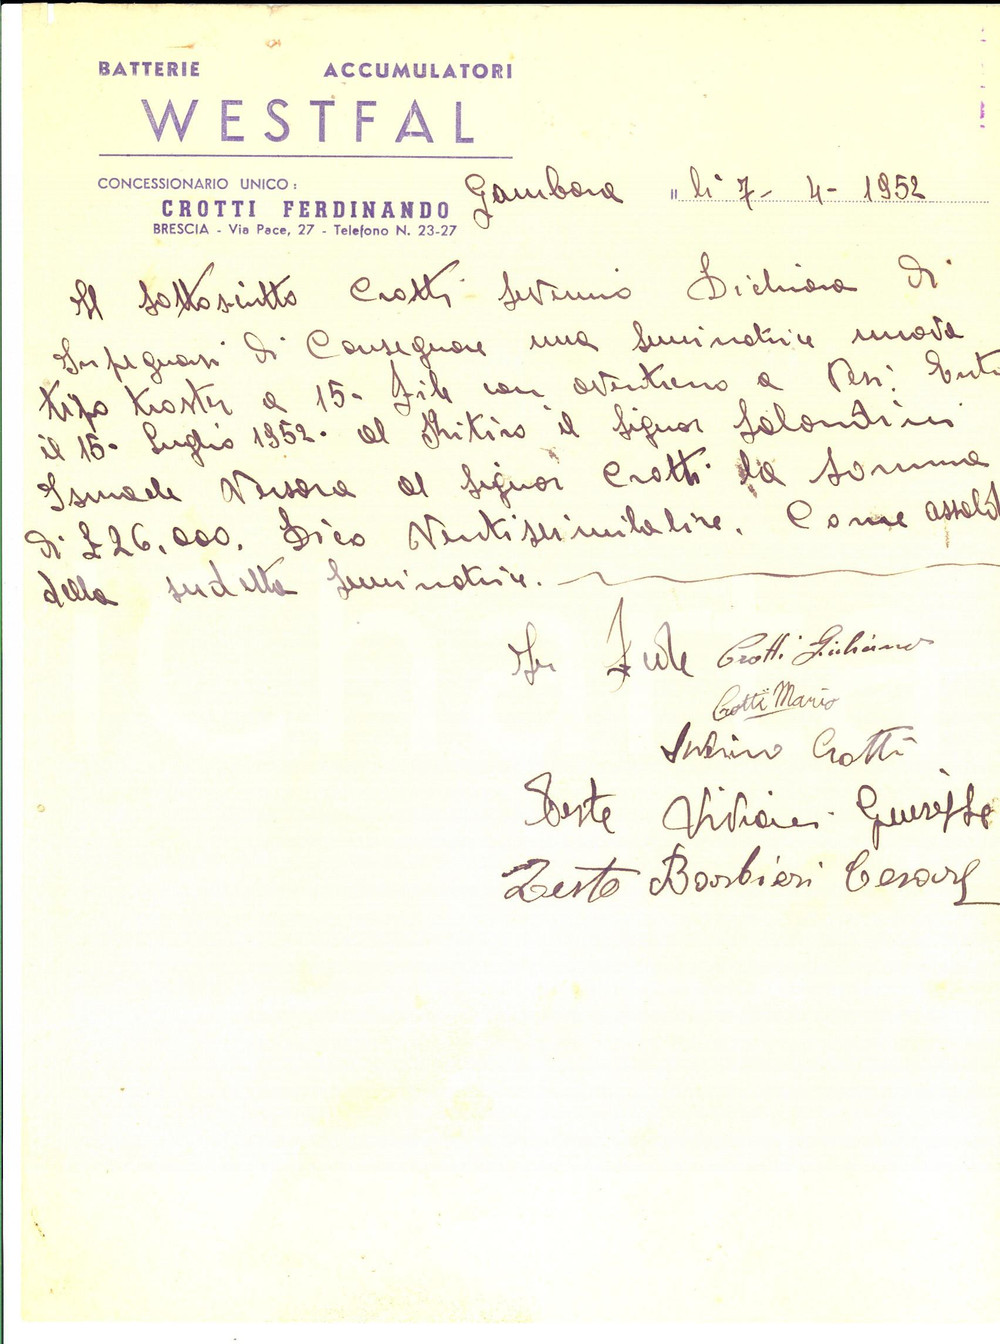 BATTERIE ACCUMULATORI
WESTFAL
CONCESSIONARIO UNICO:
CROTTI FERDINANDO
BRESCIA - Via Pace, 27 - Telefono N. 23-27
Gambara li 7 - 4 - 1952
Il sottoscritto Crotti Severino Dichiara di
Inpegnarsi di Consegnare una Seminatrice nuova
tipo a 15 - file con avantreno a
il 15 - Luglio 1952 - al Ritiro il Signor Salandini
Versera al Signor Crotti la Somma
di £ 26.000. Dico Ventiseimilalire. Come
della sudetta Seminatrice.
In Fede Crotti Giuliano
Crotti Mario
Crotti
Teste Viviani Giuseppe
Teste Barbieri Cesare